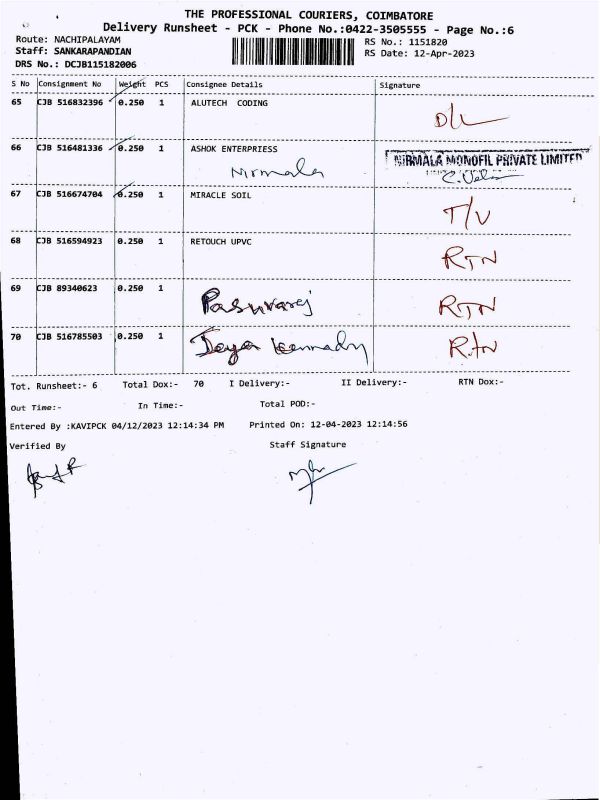 THE PROFESSIONAL COURIERS, COIMBATORE
Delivery Runsheet - PCK - Phone No.:0422-3505555 - Page No.:6
Route: NACHIPALAYAM RS No.: 1151820
Staff: SANKARAPANDIAN RS Date: 12-Apr-2023
DRS No.: DCJB115182006
S No Consignment No Weight PCS Consignee Details Signature
65 CJB 516832396 0.250 1 ALUTECH CODING
D/L
66 CJB 516481336 0.250 1 ASHOK ENTERPRIESS
Nirmala NIRMALA MONOFIL PRIVATE LIMITED
67 CJB 516674704 0.250 1 MIRACLE SOIL
T/V
68 CJB 516594923 0.250 1 RETOUCH UPVC
RTN
69 CJB 89340623 0.250 1
Pasuvaraj RTN
70 CJB 516785503 0.250 1
Jeya Kennady RTN
Tot. Runsheet:- 6 Total Dox:- 70 I Delivery:- II Delivery:- RTN Dox:-
Out Time:- In Time:- Total POD:-
Entered By :KAVIPCK 04/12/2023 12:14:34 PM Printed On: 12-04-2023 12:14:56
Verified By Staff Signature